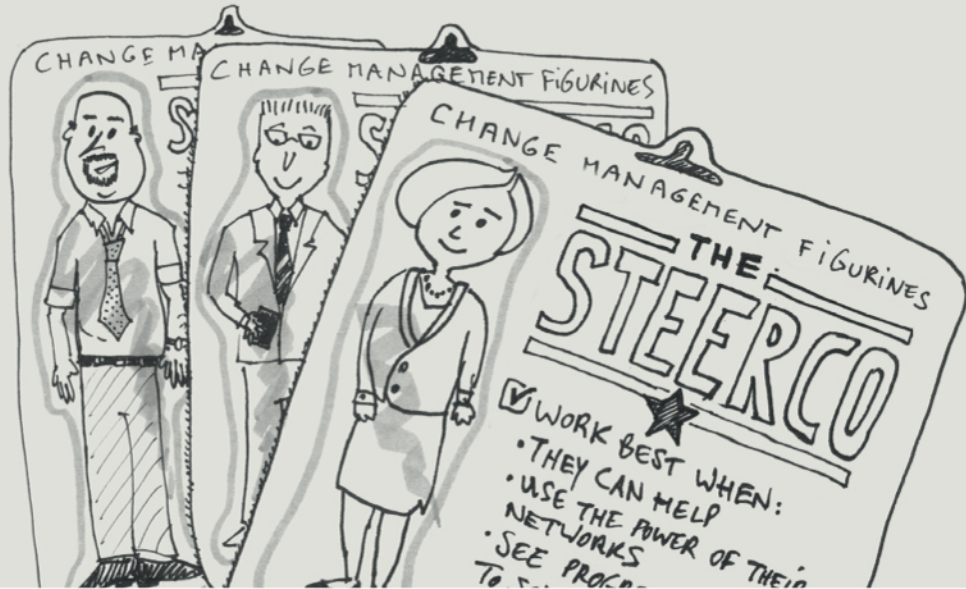 CHANGE MA
CHANGE MANAGEMENT FIGURINES
CHANGE MANAGEMENT FIGURINES
THE
STEERCO
WORK BEST WHEN:
• THEY CAN HELP
• USE THE POWER OF THEIR
NETWORKS
• SEE
TO